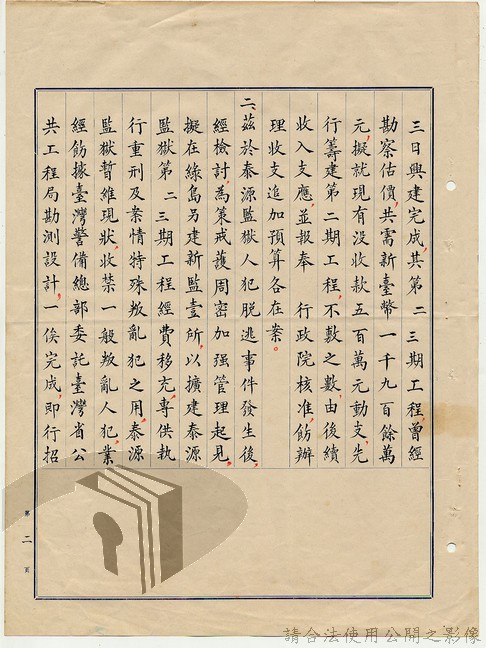 三日興建完成，其第二三期工程曾經
勘察估價，共需新臺幣一千九百餘萬
元，擬就現有沒收款五百萬元動支，先
行籌建第二期工程，不敷之數，由後續
收入支應，並報奉　行政院核准，飭辦
理收支追加預算各在案。
二、茲於泰源監獄人犯脫逃事件發生後，
經檢討，為策戒護周密加强管理起見，
擬在綠島另建新監壹所，以擴建泰源
監獄第二三期工程經費移充，專供執
行重刑及案情特殊叛亂犯之用，泰源
監獄暫維現狀，收禁一般叛亂人犯，業
經飭據臺灣警備總部委託臺灣省公
共工程局勘測設計，一俟完成，即行招
第二頁
請合法使用公開之影像